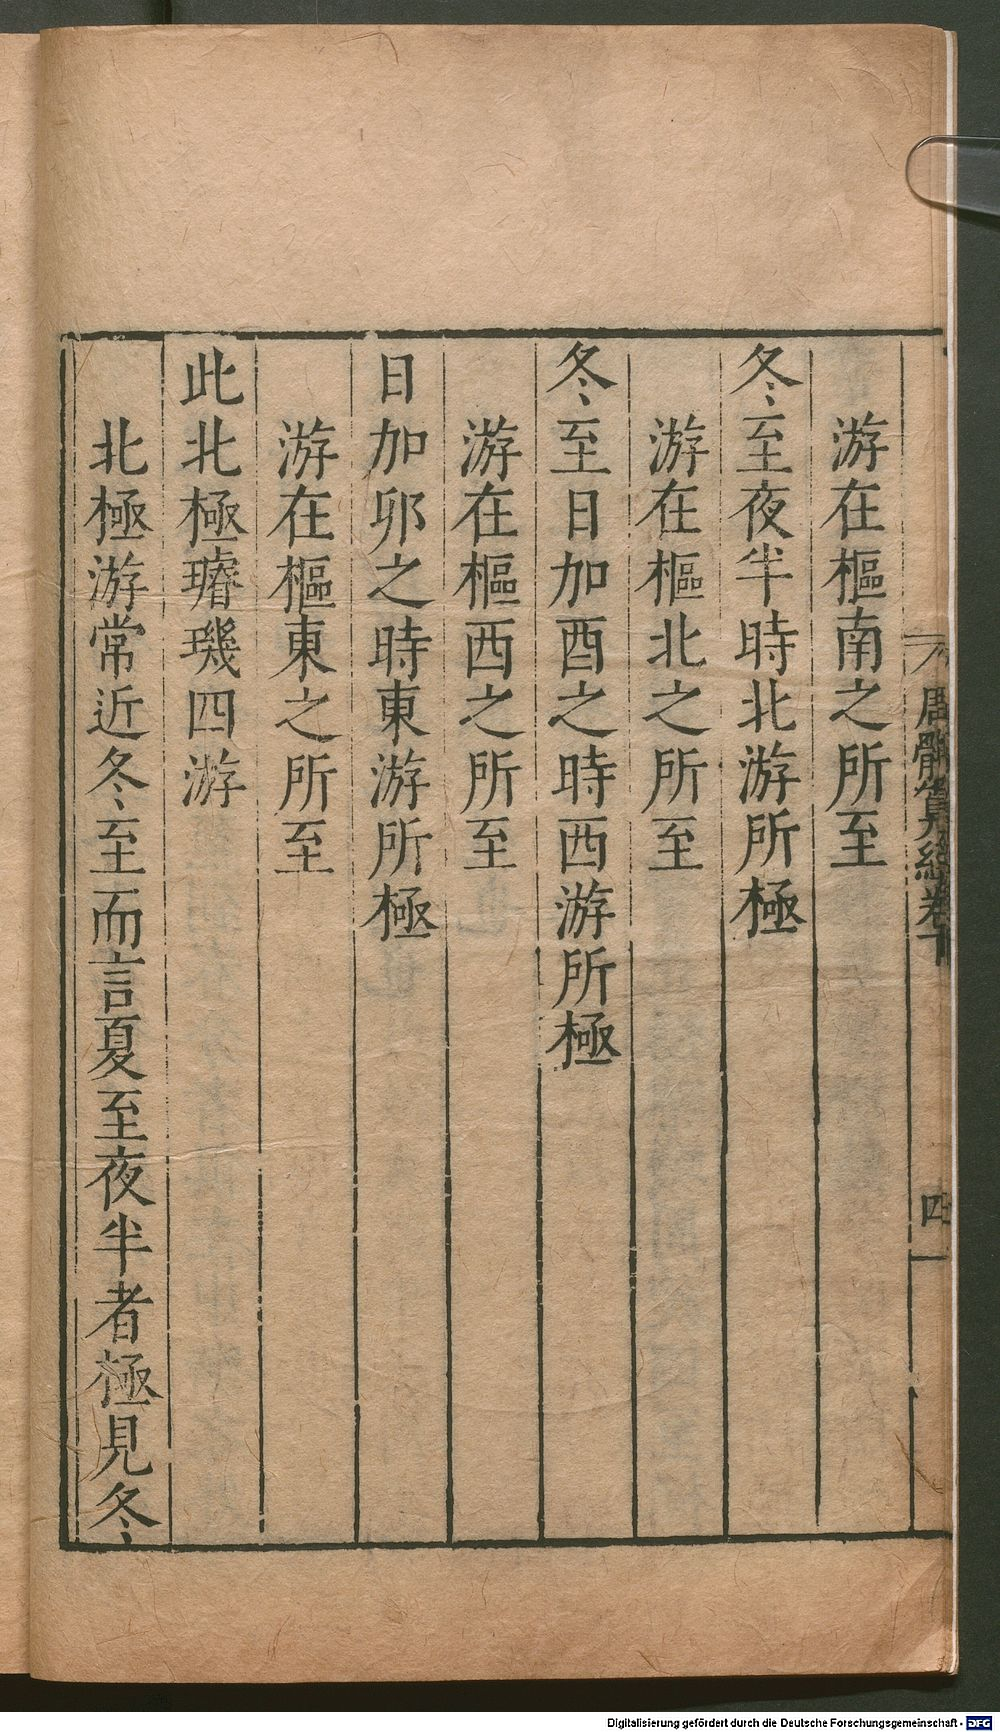 周髀算經卷下
四
游在樞南之所至
冬至夜半時北游所極
游在樞北之所至
冬至日加酉之時西游所極
游在樞西之所至
日加卯之時東游所極
游在樞東之所至
此北極璿璣四游
北極游常近冬至而言夏至夜半者極見冬
Digitalisierung gefördert durch die Deutsche Forschungsgemeinschaft - DFG